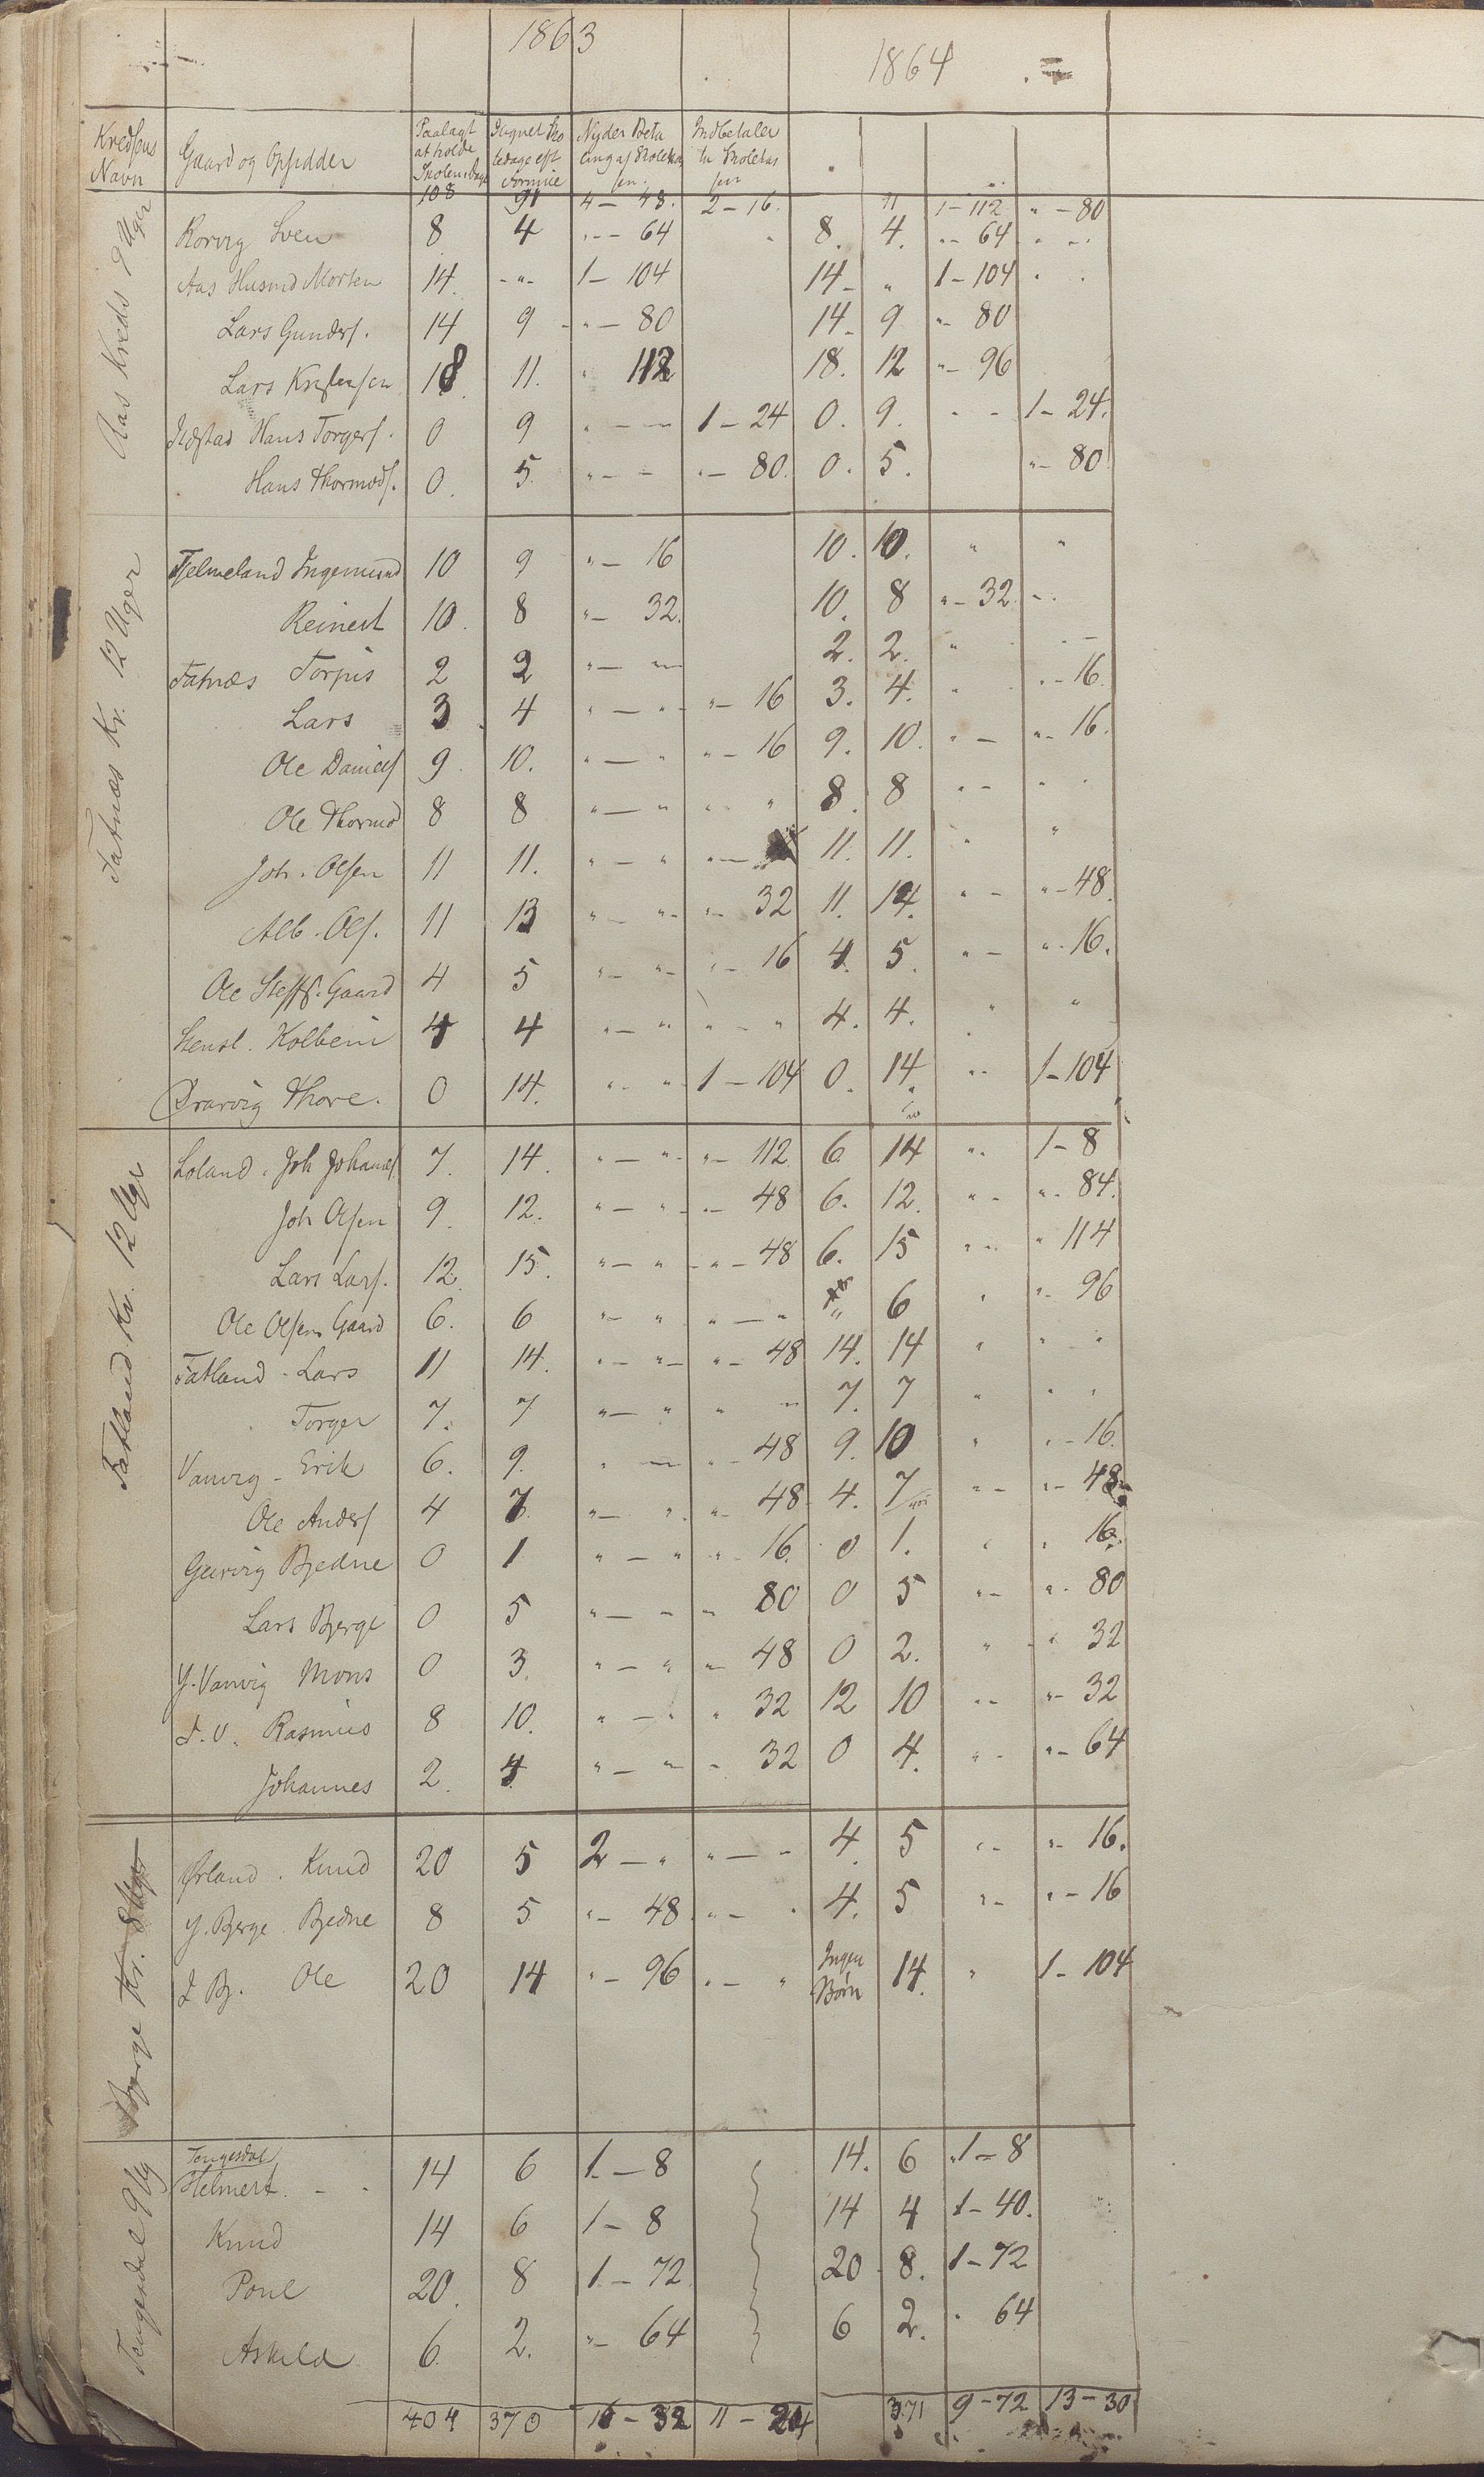 1863
1864
Kredsens Navn | Gaard og Opsidder | Paalagt at holde Skolen i Dage | Skoledage eft Formue | Nyder Betaling af Skolekassen | Indbetaler til Skolekassen
108 | 91 | 4 – 48. | 2 – 16. | | 91 | 1 – 112 | " – 80
Aas Kreds 9 Uger
Rørvig Sven | 8 | 4 | " – 64 | | 8. | 4. | " – 64
Aas Husmd Morten | 14. | – " – | 1 – 104 | | 14 – | " | 1 – 104
Lars Gunders. | 14 | 9 | " – 80 | | 14 – | 9 | " – 80
Lars Kristensen | 18. | 11. | " 112 | | 18. | 12 | " – 96
Hans Torgers. | 0 | 9 | " – " | 1 – 24 | 0. | 9. | " – | 1 – 24.
Hans Thormods. | 0. | 5. | " – – | " – 80. | 0. | 5. | | " – 80
Fatnæs Kr. 12 Uger
Tjelmeland Ingemund | 10 | 9 | " – 16 | | 10. | 10. | " | "
Reinert | 10. | 8 | " – 32. | | 10. | 8 | " – 32.
Fatnæs Torjus | 2 | 2 | " – " | | 2. | 2. | "
Lars | 3 | 4 | " – " | " – 16 | 3. | 4. | " | " – 16.
Ole Daniels | 9 | 10. | " – " | " – 16 | 9. | 10. | " – | " – 16.
Ole Thormod | 8 | 8 | " – " | " " | 8. | 8 | " –
Joh. Olsen | 11 | 11. | " – " | " – | 11. | 11. | " | "
Alb. Ols. | 11 | 13 | " – " | " – 32 | 11. | 14. | " – | " – 48.
Ole Steffs. Gaard | 4 | 5 | " – " | " – 16 | 4. | 5. | " – | " – 16.
Stensl. Kolbein | 4 | 4 | " – " | " – " | 4. | 4. | " | "
Drarvig Thore. | 0 | 14. | " " | 1 – 104 | 0. | 14. | " " | 1 – 104
Fatland Kr. 12 Uger
Loland. Joh Johans. | 7. | 14. | " – " | " – 112 | 6 | 14 | " | 1 – 8
Joh Olsen | 9. | 12. | " – " | " – 48 | 6. | 12. | " – | " – 84.
Lars Lars. | 12. | 15. | " – " | " – 48 | 6. | 15 | " " | " 114
Ole Olsen Gaard | 6. | 6 | " – " | " – " | " | 6 | " | " – 96
Fatland – Lars | 11 | 14. | " – " | " – 48 | 14. | 14 | " | " "
Torger | 7. | 7 | " – " | " " | 7. | 7 | " | "
Vanvig – Erik | 6. | 9. | " " | " – 48 | 9. | 10 | " | " – 16.
Ole Anders | 4 | 7. | " – " | " – 48 | 4. | 7 | " – | " – 48
Geirvig Bjedne | 0 | 1 | " – " | " – 16. | 0 | 1. | " | " 16.
Lars Bjerge | 0 | 5 | " – " | " 80 | 0 | 5 | " – | " 80
Y. Vanvig Mons | 0 | 3. | " – " | " – 48 | 0 | 2. | " | " 32
I. V. Rasmus | 8 | 10. | " – " | " 32 | 12 | 10 | " – | " – 32
Johannes | 2. | 4 | " – " | " 32 | 0 | 4. | " – | " – 64
Bjerge Kr. 8 Uger
Ørland. Knud | 20 | 5 | 2 – " | " – " | 4. | 5 | " – | " – 16.
Y. Bjerge Bjedne | 8 | 5 | " – 48 | " – " | 4. | 5 | " – | " – 16
I. Bj. Ole | 20 | 14 | " – 96 | " – " | Ingen Børn | 14. | " | 1 – 104
Tengesdal 9 Ug
Tengesdal
Helmert. – | 14 | 6 | 1 – 8 | | 14. | 6 | 1 – 8
Knud | 14 | 6 | 1 – 8 | | 14 | 4 | 1 – 40.
Poul | 20. | 8 | 1 – 72 | | 20 | 8. | 1 – 72
Askild | 6. | 2. | " – 64 | | 6 | 2. | " 64
404 | 370 | 16 – 32 | 11 – 24 | | 371 | 9 – 72 | 13 – 30